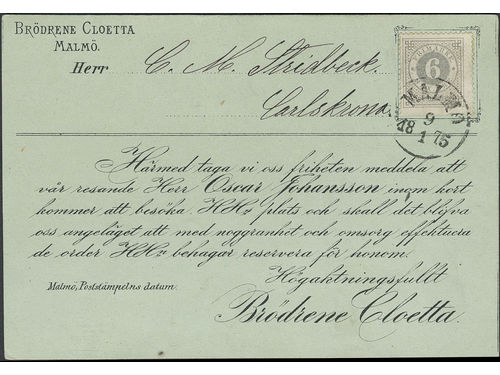 BRÖDRENE CLOETTA
MALMÖ.
Herr C. M. Stridbeck.
Carlskrona.
FRIMÄRKE
6
MALMÖ
9
18 1 75
Härmed taga vi oss friheten meddela att
vår resande Herr Oscar Johansson inom kort
kommer att besöka HHrs plats och skall det blifva
oss angeläget att med noggranhet och omsorg effektuera
de order HHr behagar reservera för honom.
Högaktningsfullt
Malmö, Poststämpelns datum.
Brödrene Cloetta.